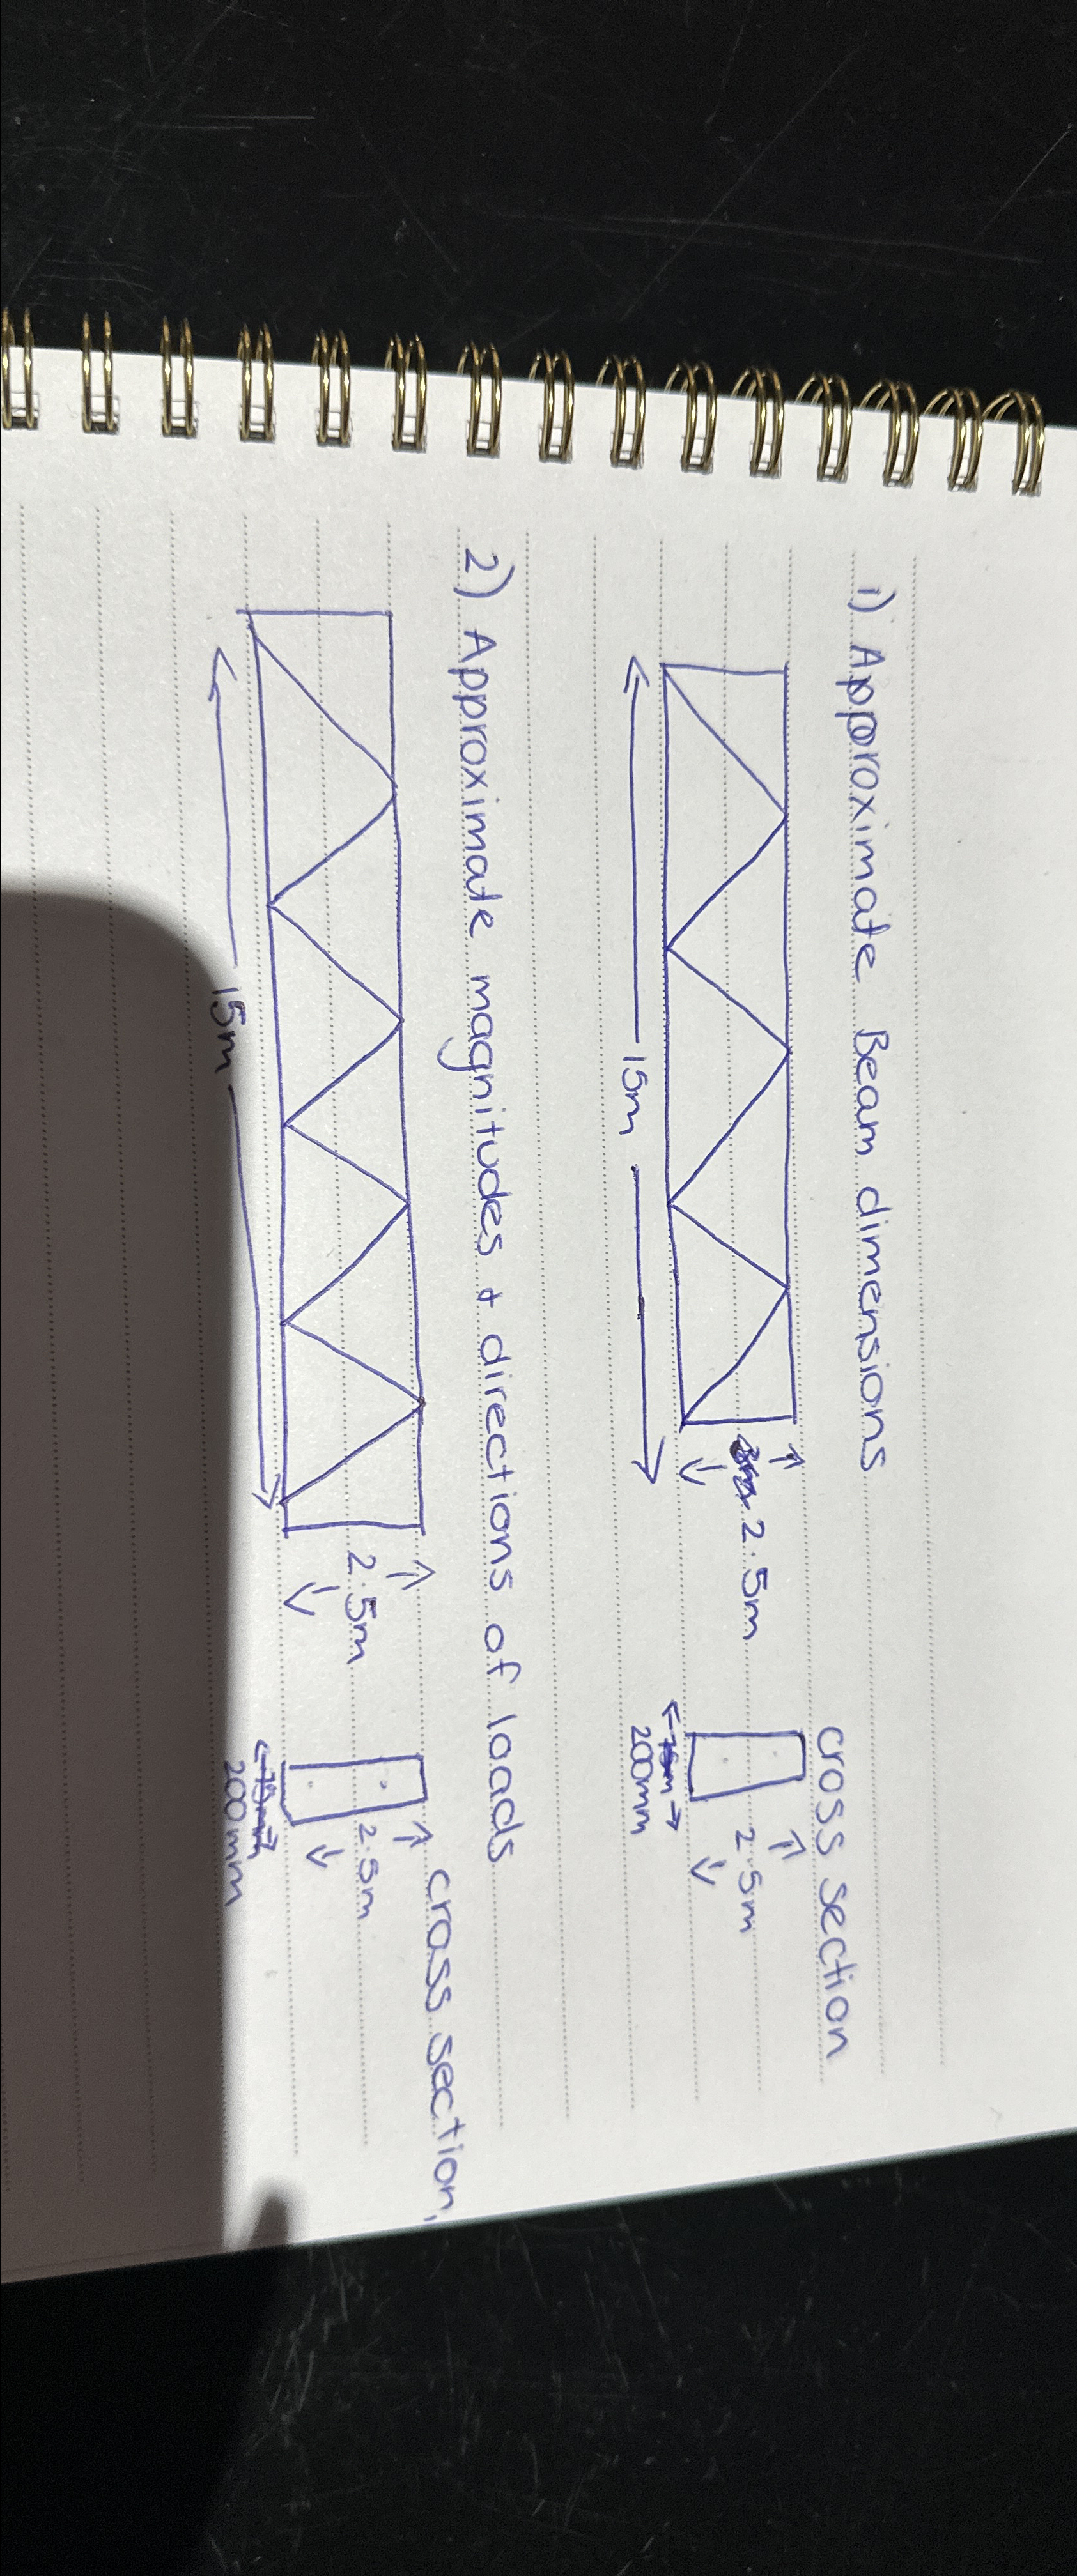 1) Approximate Beam dimensions
cross section
2.5m
2.5m
15m
200mm
2) Approximate magnitudes + directions of loads
cross section,
2.5m
2.5m
15m
200mm